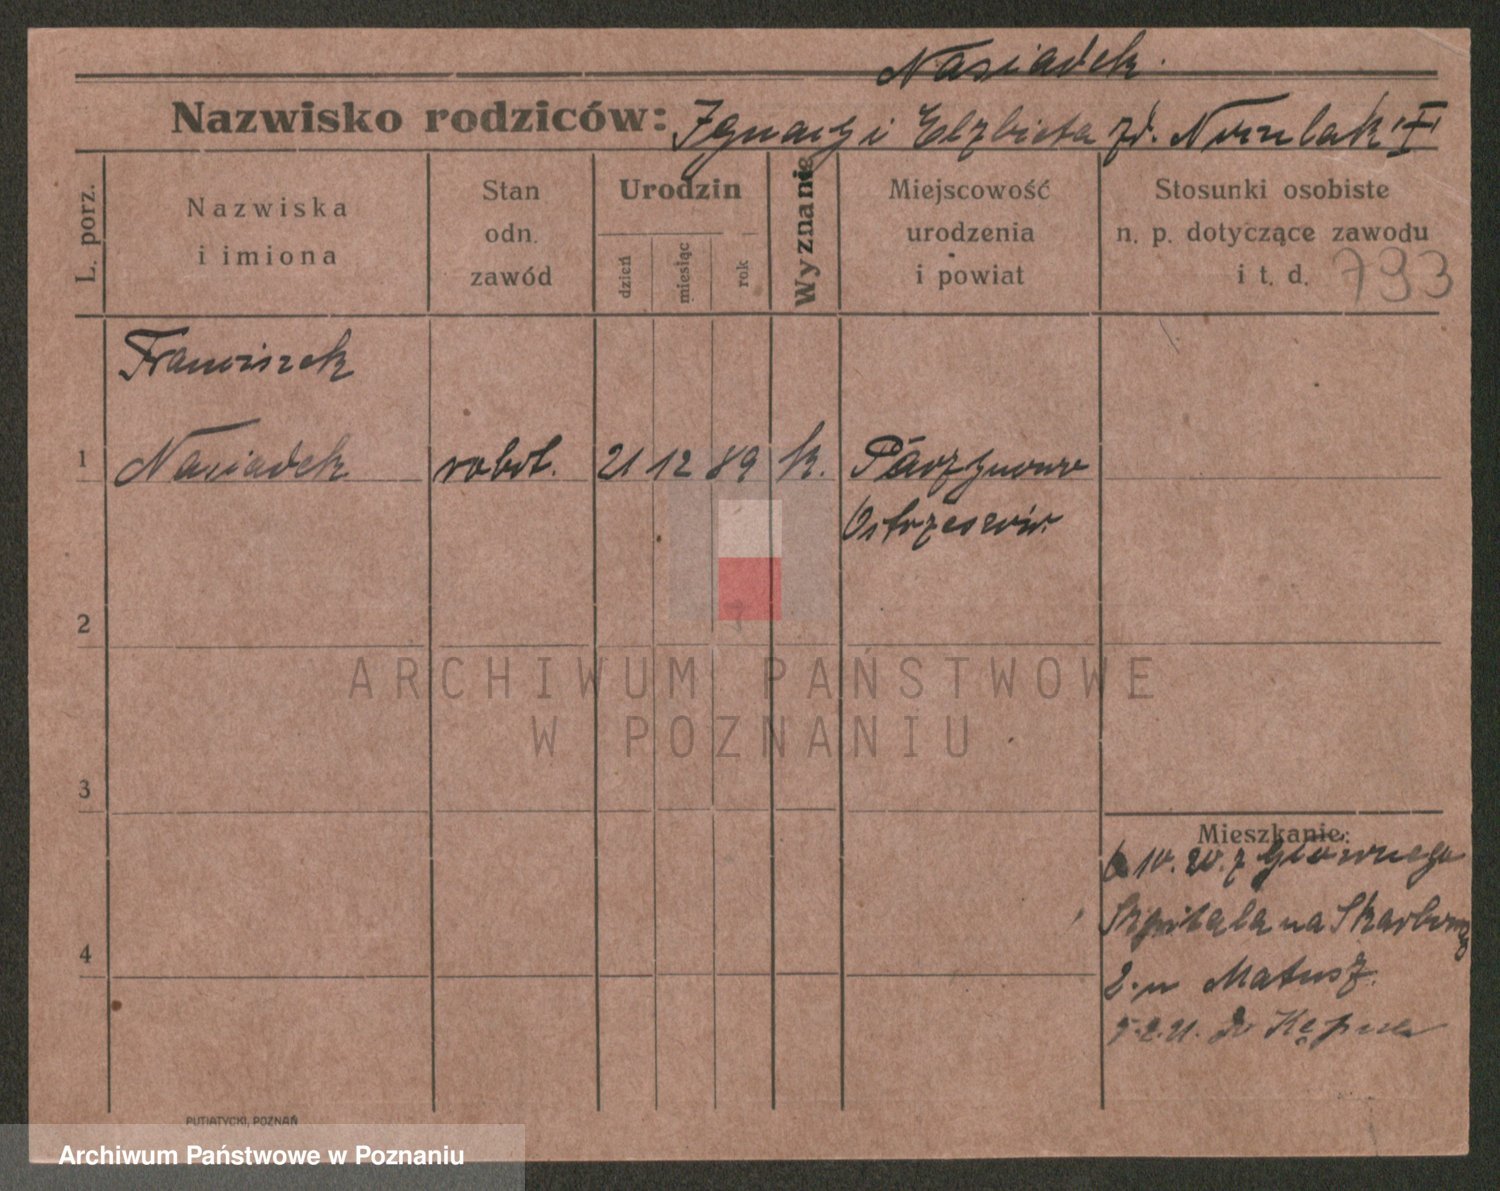 Nasiadek.
Nazwisko rodziców: Ignacy i Elżbieta zd.
L. porz.
Nazwiska
i imiona
Stan
odn.
zawód
Urodzin
dzień
miesiąc
rok
Wyznanie
Miejscowość
urodzenia
i powiat
Stosunki osobiste
n. p. dotyczące zawodu
i t. d. 793
Franciszek
1 Nasiadek robot. 21 12 89 k. Parzynowo
Ostrzeszów.
2
ARCHIWUM PAŃSTWOWE
W POZNANIU
3
Mieszkanie:
10. 20. z Głównego
Szpitala na Skarbową
2. u Matusz.
5.2.21. do Kępna
4
PUTIATYCKI, POZNAŃ
Archiwum Państwowe w Poznaniu